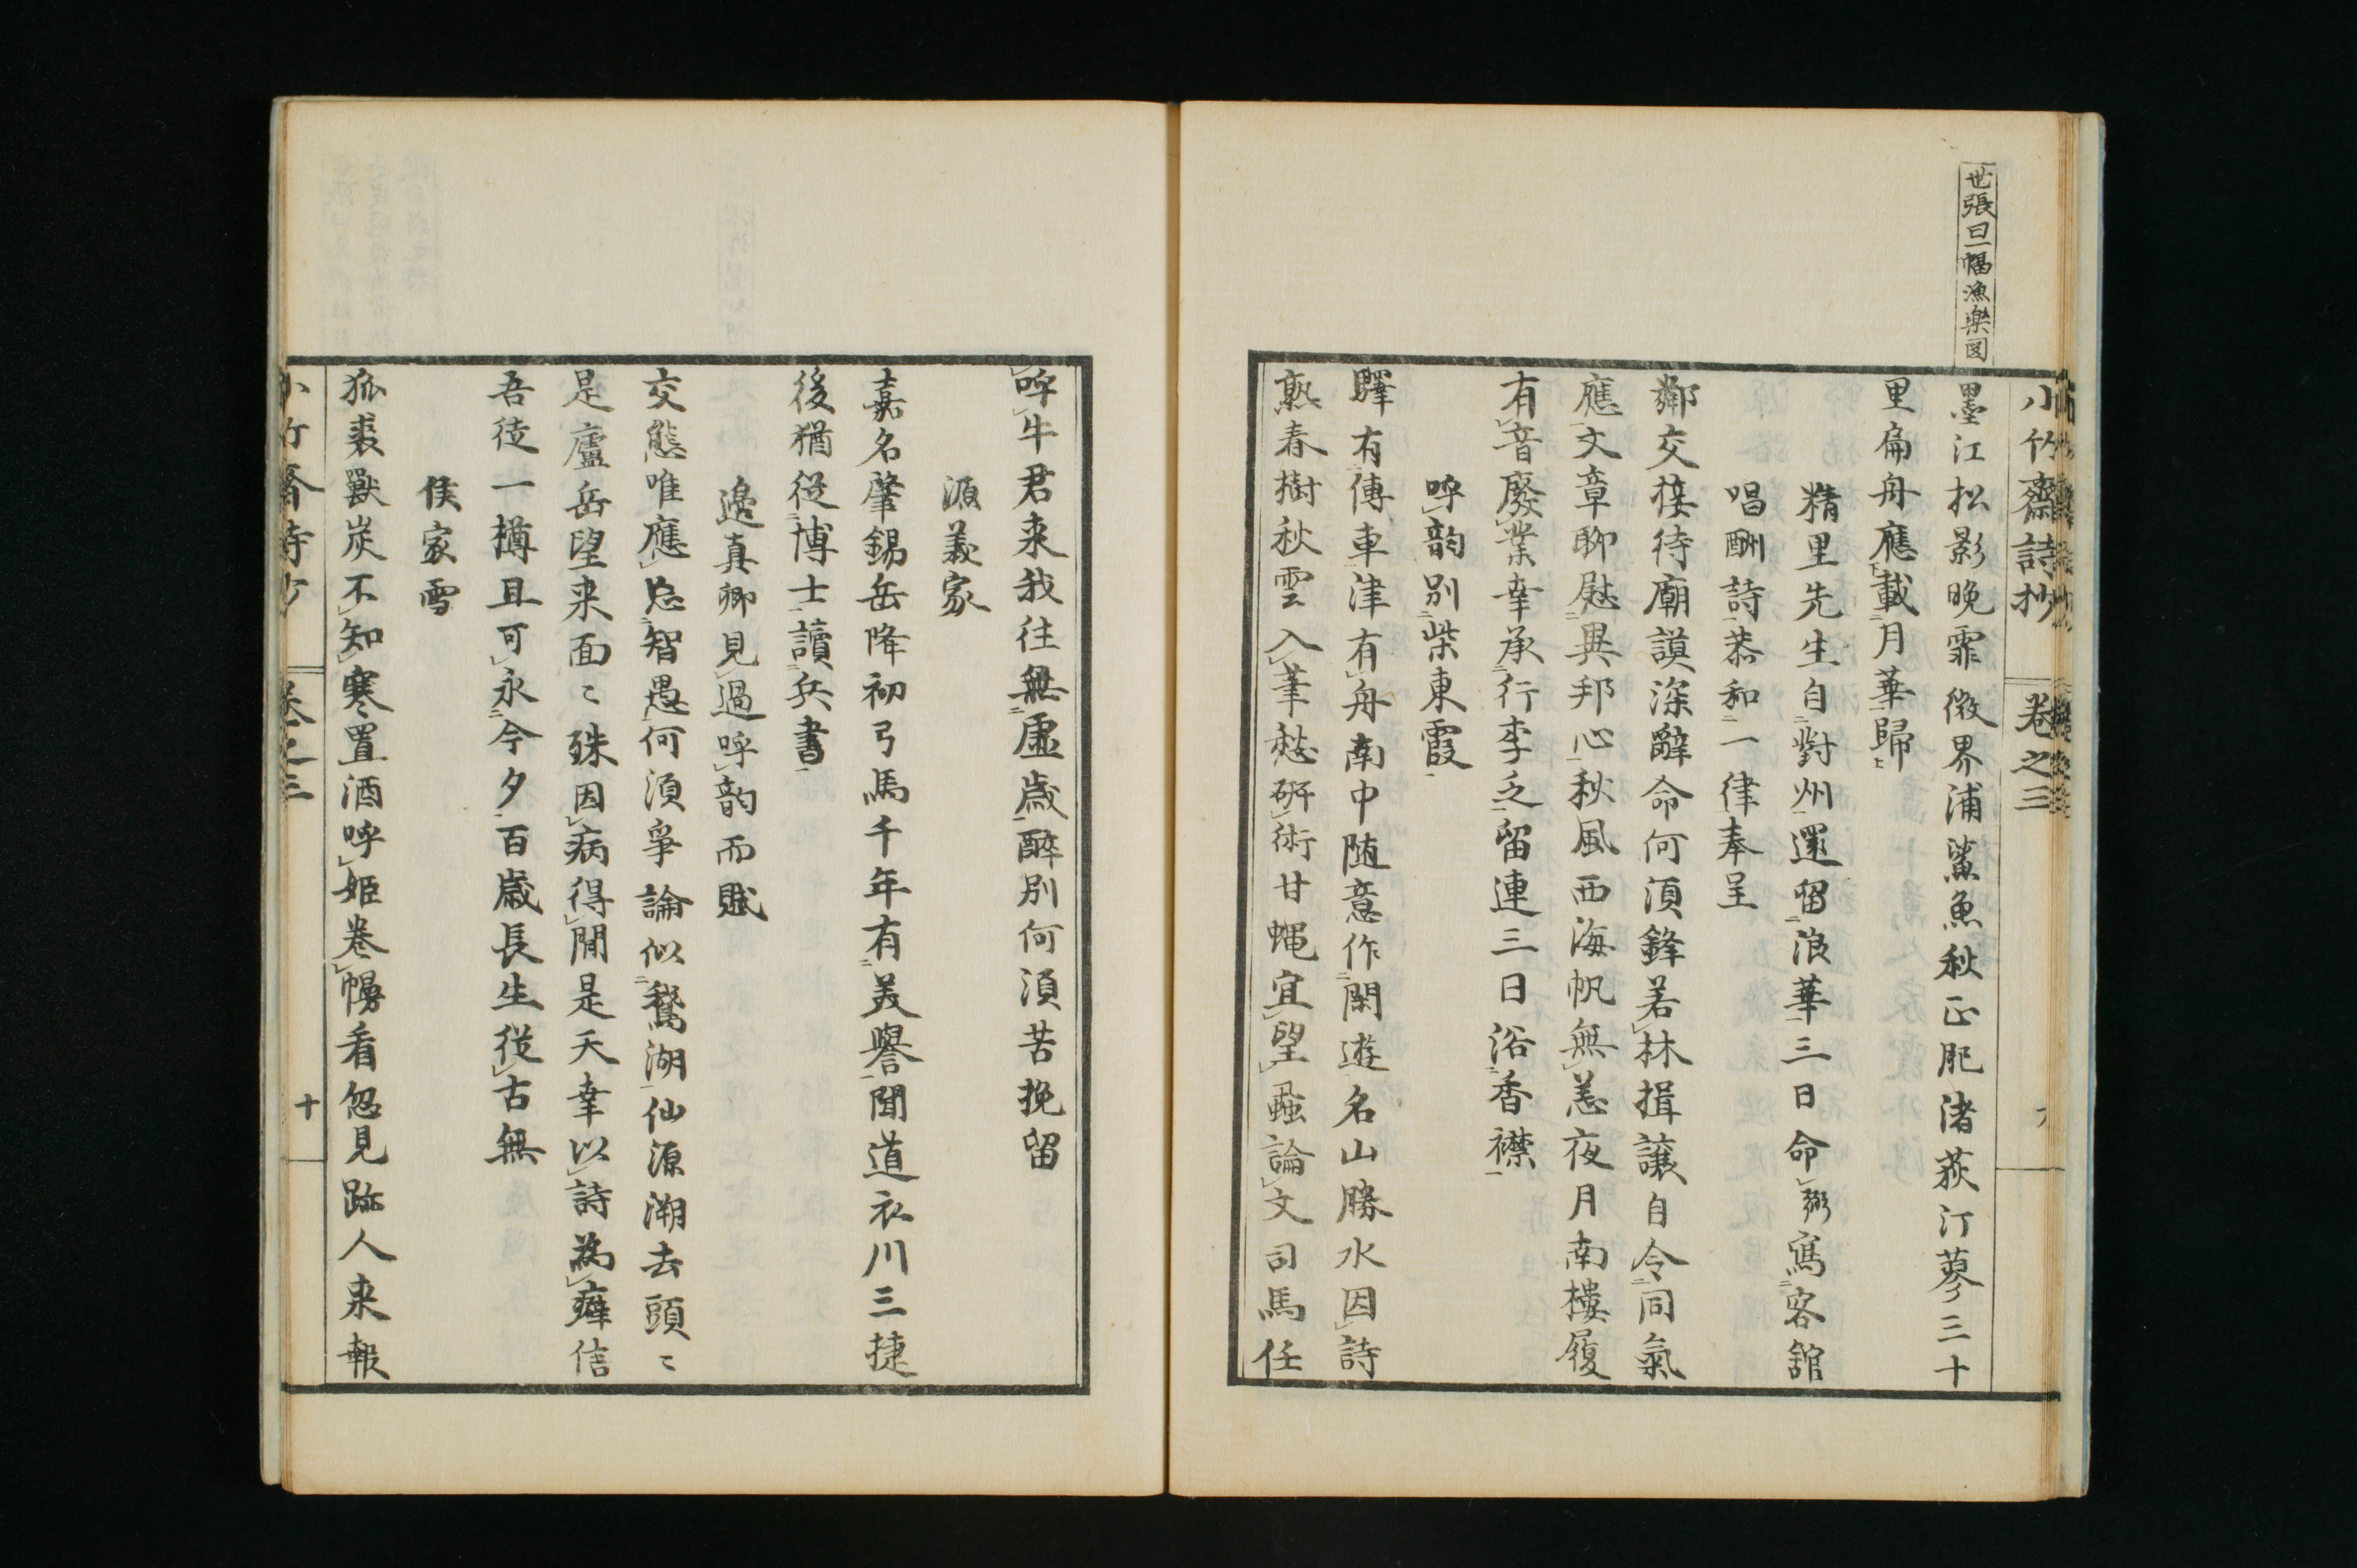 世張旦一幅漁楽図
小竹齋詩抄 卷之三
墨江松影晩霏微界浦鯊魚秋正肥渚荻汀蓼三十
里扁舟應載月華歸
精里先生自對州還留浪華三日命弼寫客舘
唱酬詩恭和一律奉呈
鄰交接待廟謨深辭命何須鋒若林揖讓自令同氣
應文章聊慰異邦心秋風西海帆無恙夜月南樓履
有音廢業幸承行李乏留連三日浴香襟
呼韵別柴東霞
驛有傳車津有舟南中随意作閑遊名山勝水因詩
熟春樹秋雲入筆愁研術甘蠅宜望蝨論文司馬任
呼牛君来我往無虚歳醉別何須苦挽留
源義家
嘉名肇錫岳降初弓馬千年有美譽聞道衣川三捷
後猶從博士讀兵書
邉真卿見過呼韵而賦
交態唯應忘智愚何須爭論似鵞湖仙源溯去頭〻
是廬岳望来面〻殊因病得閒是天幸以詩為癖信
吾徒一樽且可永今夕百歳長生從古無
侯家雪
狐裘獸炭不知寒置酒呼姫巻幔看忽見跡人来報
小竹齋詩抄 卷之三 十